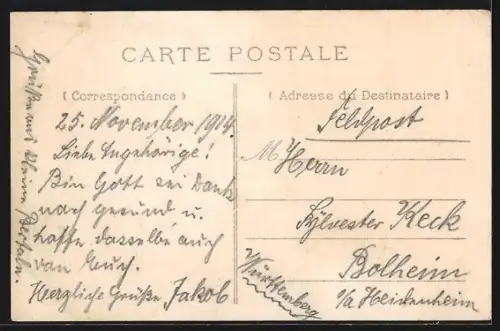 CARTE POSTALE
( Correspondance )
25. November 1914.
Liebe Angehörige!
Bin Gott sei Dank
noch gesund u.
hoffe dasselbe auch
von Euch.
Herzliche Grüße Jakob
( Adresse du Destinataire )
Feldpost
M Herrn
Sylvester Keck
Bolheim
o/a Heidenheim
Württemberg
Grüße auch